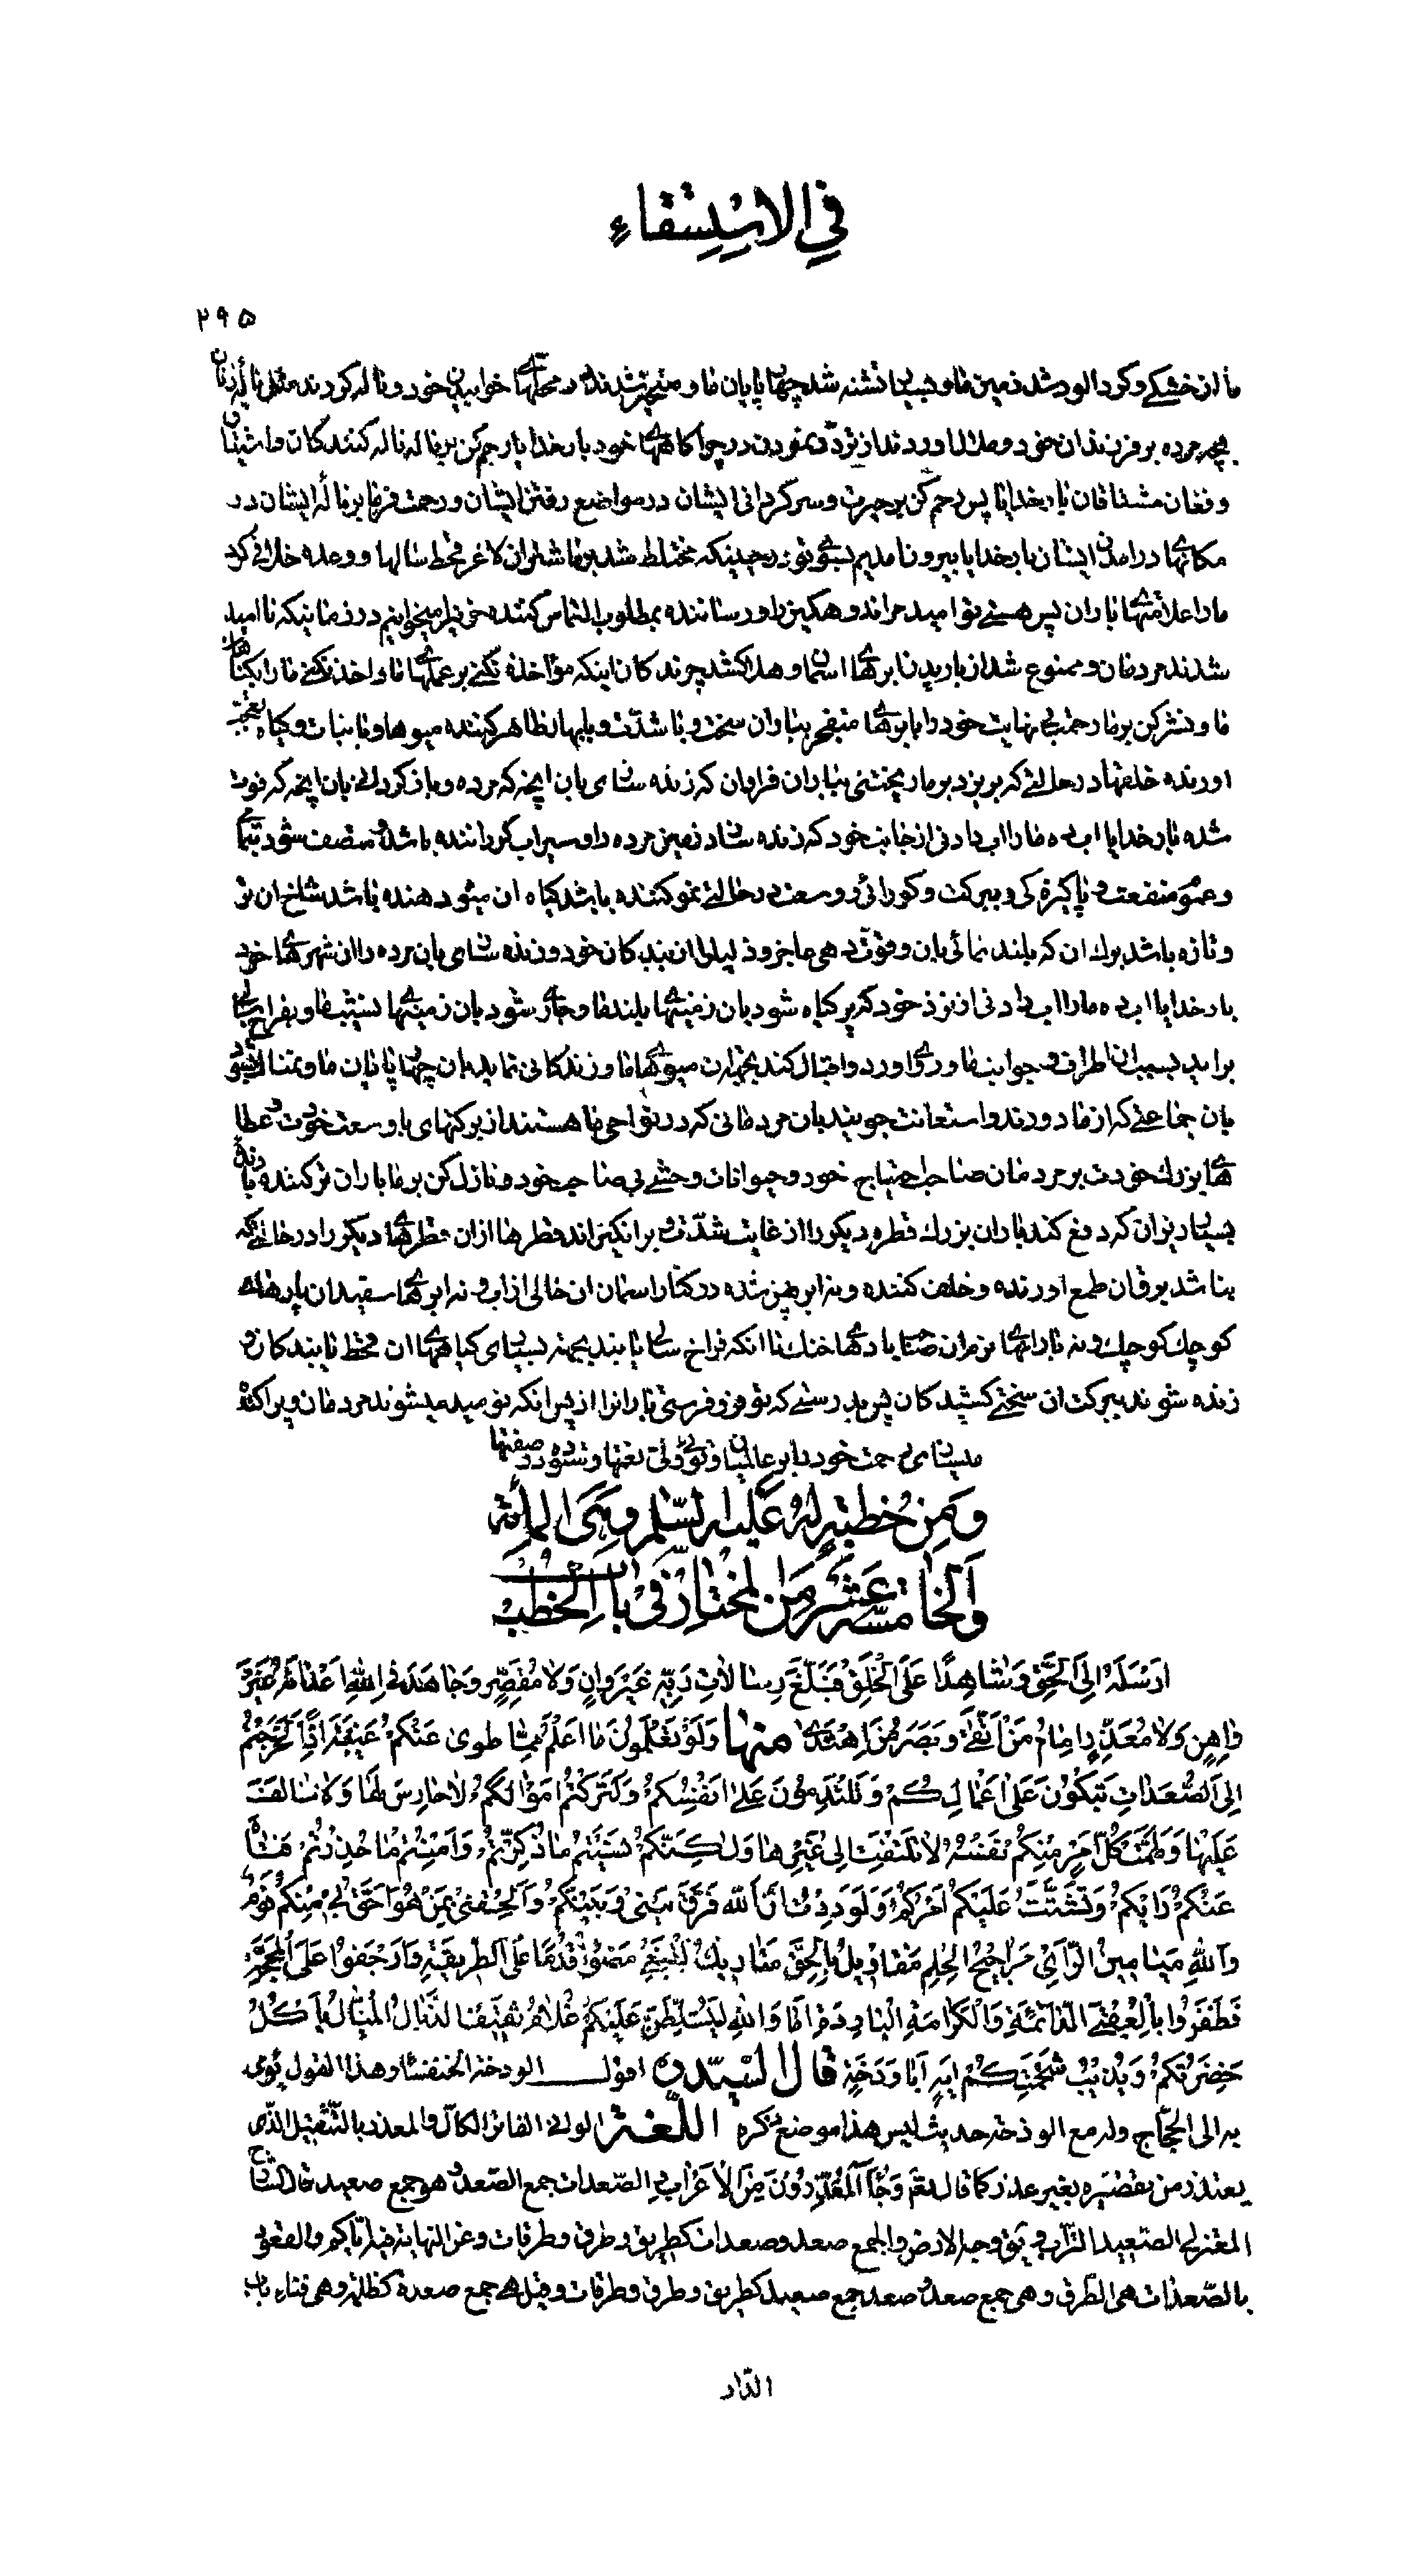 في الاستسقاء
۲۹۵
ما از خشكي و كرد الود شد زمين ما و بسيار تشنه شد چهار پايان ما و متحير شدند در محلهاي خوابيدن خود و ناله كردند مثل ناله زنان
بچه مرده بر فرزندان خود و ملال اوردند از تردد نمودن در چراكاههاي خود بار خدايا رحم كن بر ناله ناله كنندكان و اشتياق
و فغان مشتاقان بار خدايا پس رحم كن بر حيرت و سركرداني ايشان در مواضع رفتن ايشان و رحمت فرما بر ناله ايشان در
مكانهاي درامدن ايشان بار خدايا بيرون امديم بسوي تو در حينيكه مختلط شد بر ما شتران لاغر قحط سالها و وعده خلافي كرد
ما را علامتهاي باران پس هستي تو اميد هر اندوهكين و رساننده بمطلوب التماس كننده ميخوانيم در زمانيكه نااميد
شدند مردمان و ممنوع شد از باريدن ابرهاي اسمان و هلاك شد چرندكان اينكه مؤاخذه نكني بر عملهاي ما و اخذ نكني ما را بكناهان
ما و نشر كن بر ما رحمت بي نهايت خود را بابرهاي منفجر بباران سخت و با شدت و بابهار ظاهر كننده ميوها و نباتات و كياه بتعجب
اورنده خلقها در حالتي كه بريزد بر ما ريختني بباران فراوان كه زنده سازي بان انچه كه مرده و باز كرداني بان انچه كه فوت
شده بار خدايا اب ده ما را اب دادني از جانب خود كه زنده سازد زمين مرده را و سيراب كرداننده باشد متصف شود بتمامي
و عموم منفعت و پاكيزه كي و ببركت و كوارائي و وسعت در حالتي نمو كننده باشد كياه ان ميوه دهنده باشد شاخ ان تر
و تازه باشد برك ان كه بلند نمائي بان و قوت دهي عاجز و ذليل را از بندكان خود و زنده سازي بان مرده را از شهرهاي خود
بار خدايا اب ده ما را اب دادني از نزد خود كه پر كياه شود بان زمينهاي بلند ما و جاري شود بان زمينهاي نشيب ما و بفراخ سالي
برايد بسبب ان اطراف و جوانب ما و رو اورد و اقبال كند بجهة ان ميوهاي ما و زندكاني نمايد بان چهار پايان ما و نمناك شود
بان جماعتي كه از ما دورند و استعانت جويند بان مردماني كه در نواحي ما هستند از بركتهاي با وسعت خودت و عطا
هاي بزرك خودت بر مردمان صاحب احتياج خود و حيوانات وحشي بي صاحب خود و نازل كن بر ما باران تر كننده بارنده
بسيار ريزان كه دفع كند باران بزرك قطره ديكر را از غايت شدت و برانكيزاند قطرها از ان قطرهاي ديكر را در حالتي كه
نباشد برق ان طمع اورنده و خلف كننده و نه ابر پهن شده در كنار اسمان ان خالي از اب و نه ابرهاي سفيد ان پارهاي
كوچك كوچك و نه بارانهاي نرم ان صاحب بادهاي خنك تا انكه فراخ سالي يابند بجهة بسياري كياههاي ان قحط يابندكان و
زنده شوند ببركت ان سختي كشيدكان پس بدرستي كه تو فرو فرستي باران را از پس انكه نوميد ميشوند مردمان و پراكنده
ميسازي رحمت خود را بر عالميان و توئي ولي نعمتها و ستوده در صفتها
وَمِن خُطبَةٍ لَهُ عَلَيهِ السَّلام وَهِيَ المِائَة
وَالخامِسَة عَشَر مِنَ المُختارِ في بابِ الخُطَبِ
اَرسَلَهُ داعِيًا اِلَى الحَقِّ وَشاهِدًا عَلَى الخَلقِ فَبَلَّغَ رِسالاتِ رَبِّهِ غَيرَ وانٍ وَلا مُقَصِّرٍ وَجاهَدَ فِي اللهِ اَعداءَهُ غَيرَ
واهِنٍ وَلا مُعَذِّرٍ اِمامُ مَنِ اتَّقى وَبَصَرُ مَنِ اهتَدى منها وَلَو تَعلَمُونَ ما اَعلَمُ مِمّا طوى عَنكُم غَيبُهُ اِذًا لَخَرَجتُم
اِلَى الصُّعَداتِ تَبكُونَ عَلى اَعمالِكُم وَتَلتَدِمُونَ عَلى اَنفُسِكُم وَلَتَرَكتُم اَموالَكُم لا حارِسَ لَها وَلا خالِفَ
عَلَيها وَلَهَمَّت كُلَّ امرِءٍ مِنكُم نَفسُهُ لا يَلتَفِتُ اِلى غَيرِها وَلكِنَّكُم نَسيتُم ما ذُكِّرتُم وَاَمِنتُم ما حُذِّرتُم فَتاهَ
عَنكُم رَايُكُم وَتَشَتَّتَ عَلَيكُم اَمرُكُم وَلَوَدِدتُ اَنَّ اللهَ فَرَّقَ بَيني وَبَينَكُم وَاَلحَقَني بِمَن هُوَ اَحَقُّ بي مِنكُم قَومٌ
وَاللهِ مَيامينُ الرَّأيِ مَراجيحُ الحِلمِ مَقاويلُ بِالحَقِّ مَتاريكُ لِلبَغيِ مَضَوا قُدُمًا عَلَى الطَّريقَةِ وَاَوجَفُوا عَلَى المَحَجَّةِ
فَظَفَرُوا بِالعُقبَى الدّائِمَةِ وَالكَرامَةِ البارِدَةِ اَما وَاللهِ لَيُسَلَّطَنَّ عَلَيكُم غُلامُ ثَقيفٍ الذَّيّالُ المَيّالُ يَأكُلُ
خَضِرَتَكُم وَيُذيبُ شَحمَتَكُم ايهٍ اَبا وَذَحَةٍ قال السّيّد ره اقول الوذحة الخنفساء وهذا القول يومى
به الى الحجّاج وله مع الوذحة حديث ليس هذا موضع ذكره اللّغة الوانى الفاتر الكالّ والمعذر بالتّثقيل الذى
يعتذر من تقصيره بغير عذر كما قال تعم وَجاءَ المُعَذِّرُونَ مِنَ الاَعرابِ الصّعدات جمع الصّعد وهو جمع صعيد قال الشارح
المعتزلى الصّعيد التّراب ويق وجه الارض والجمع صعد وصعدات كطريق وطرق وطرقات وعن النهاية فيه ايّاكم والقعود
بالصّعدات هى الطّرق وهى جمع صعد وصعد جمع صعيد كطريق وطرق وطرقات وقيل هى جمع صعدة كظلمة وهى فناء باب
الدّار